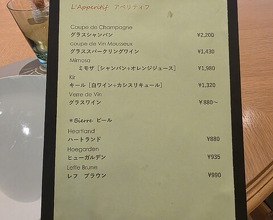 L'Apperitif アペリティフ
Coupe de Champagne
グラスシャンパン ¥2,200
coupe de Vin Mousseux
グラススパークリングワイン ¥1,430
Mimosa
ミモザ [シャンパン+オレンジジュース] ¥1,980
Kir
キール [白ワイン+カシスリキュール] ¥1,320
Verre de Vin
グラスワイン ¥880～
*Bierre ビール
Heartland
ハートランド ¥880
Hoegarden
ヒューガルデン ¥935
Leffe Brune
レフ ブラウン ¥990